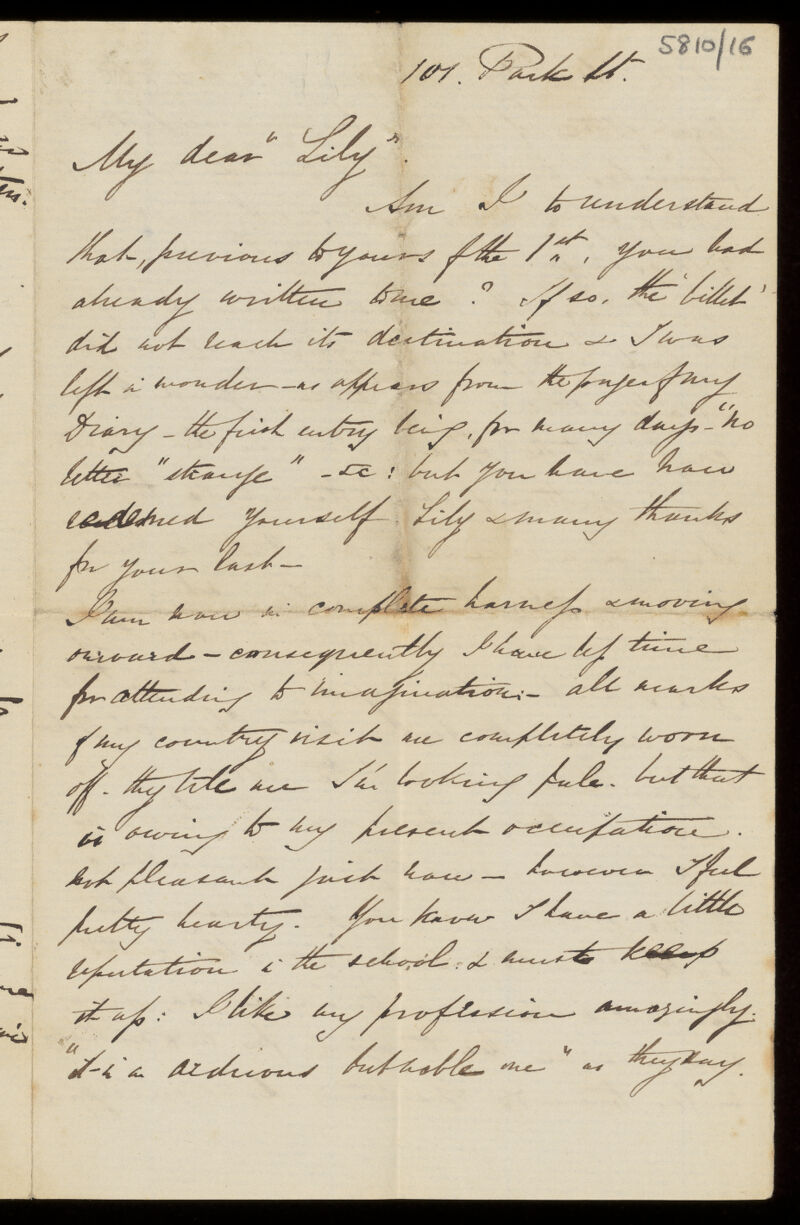 5810/16
101. Park St.
My dear "Lily"
Am I to understand
that, previous to yours of the 1st, you had
already written to me? If so, the 'billet'
did not reach its destination & I was
left in wonder — as appears from the pages of my
Diary — the first entry being, for many days — "no
letter" "strange" — &c: but you have now
redeemed yourself Lily & many thanks
for your last —
I am now in complete harness & moving
onward — consequently I have less time
for attending to imagination: — all marks
of my country visit are completely worn
off. they tell me I'm looking pale. but that
is owing to my present occupation.
not pleasant just now — however I feel
pretty hearty. You know I have a little
reputation in the school: & must keep
it up: I like my profession amazingly.
"It is an ardrious but noble one" as they say.